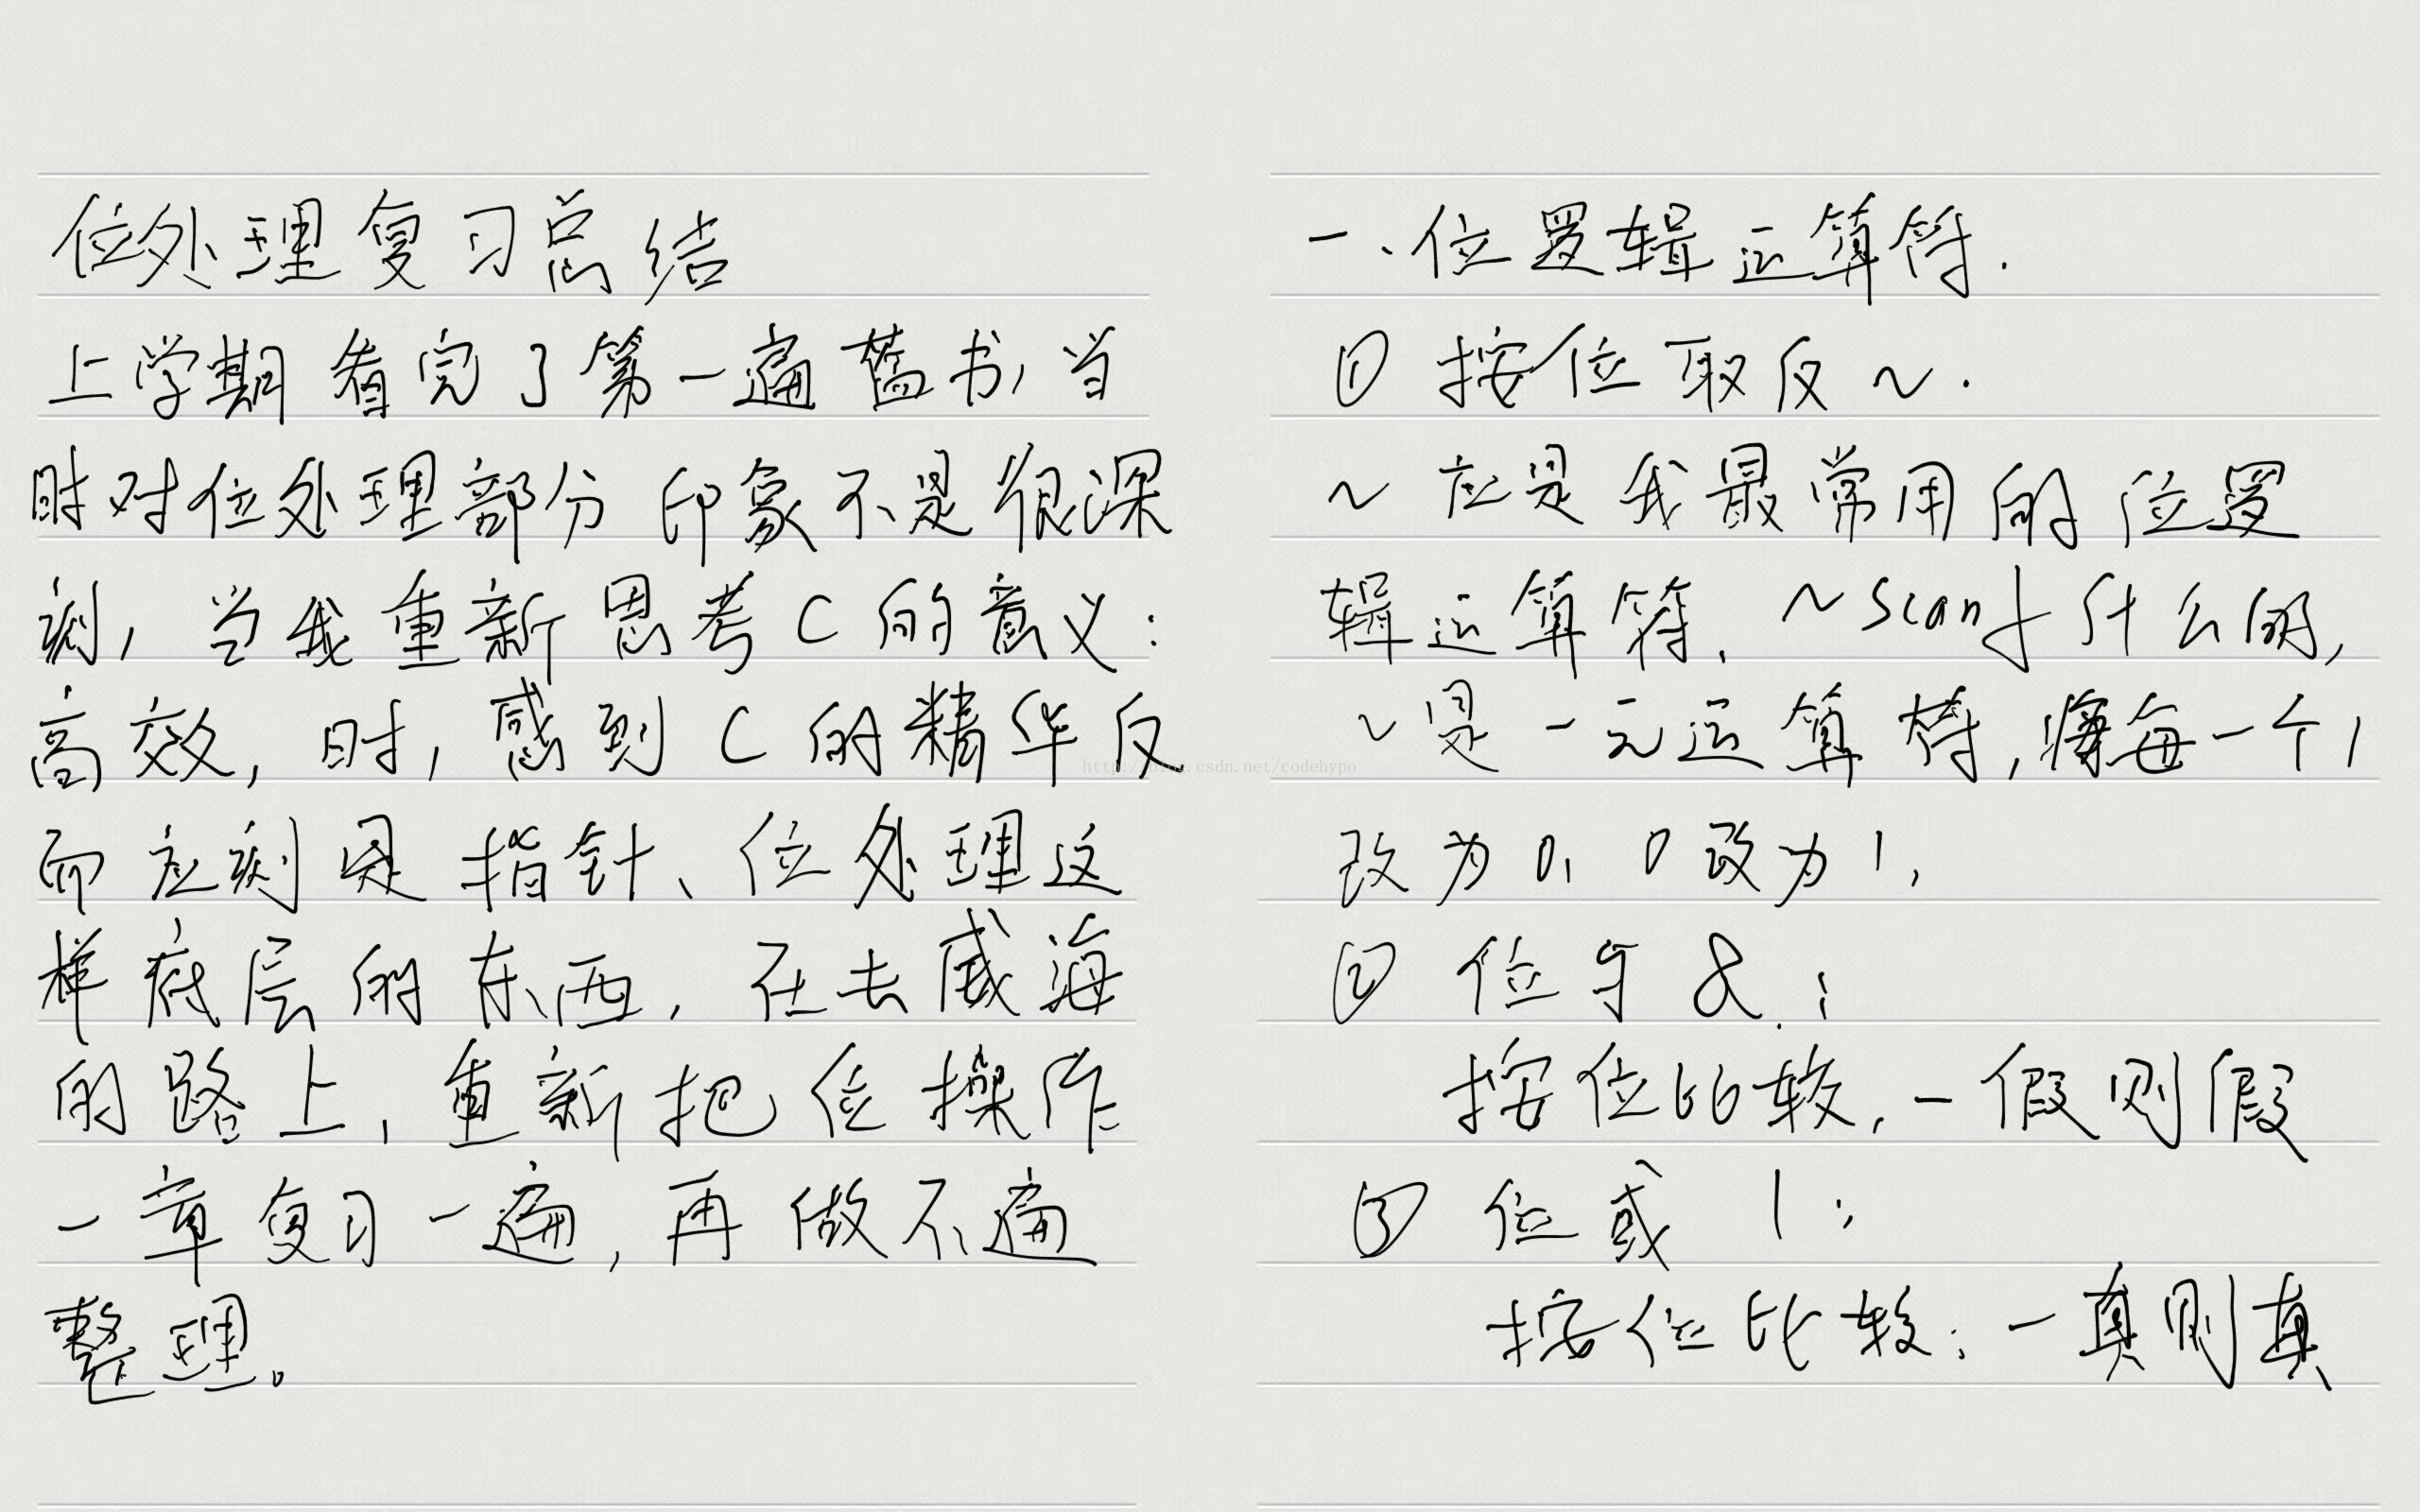 位处理复习总结
上学期看完了第一遍蓝书,当
时对位处理部分印象不是很深
刻,当我重新思考C的意义:
高效,时,感到C的精华反
而应刻是指针、位处理这
样底层的东西,在去威海
的路上,重新把位操作
一章复习一遍,再做不遍
整理。
一、位逻辑运算符.
① 按位取反~.
~应是我最常用的位逻
辑运算符.~scanf什么的,
~是一元运算符,将每一个1
改为0,0改为1,
② 位与&:
按位比较,一假则假
③ 位或 |:
按位比较:一真则真
http://blog.csdn.net/codehypo